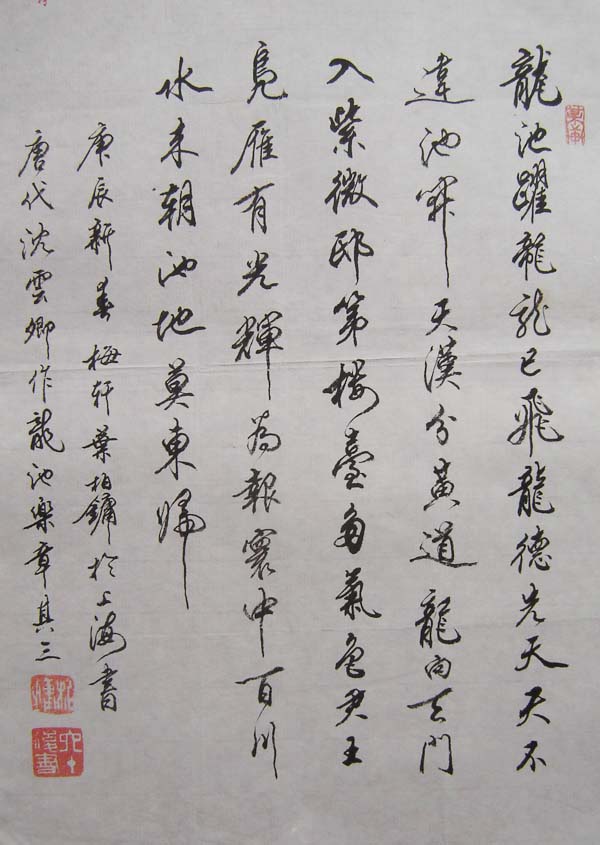 龍池躍龍龍已飛龍德先天天不
違池開天漢分黃道龍向天門
入紫微邸第樓臺多氣色君王
鳧雁有光輝為報寰中百川
水来朝池地莫東歸
庚辰新春梅軒葉柏鏞於上海書
唐代沈雲卿作龍池樂章其三
柏鏞
六十後書